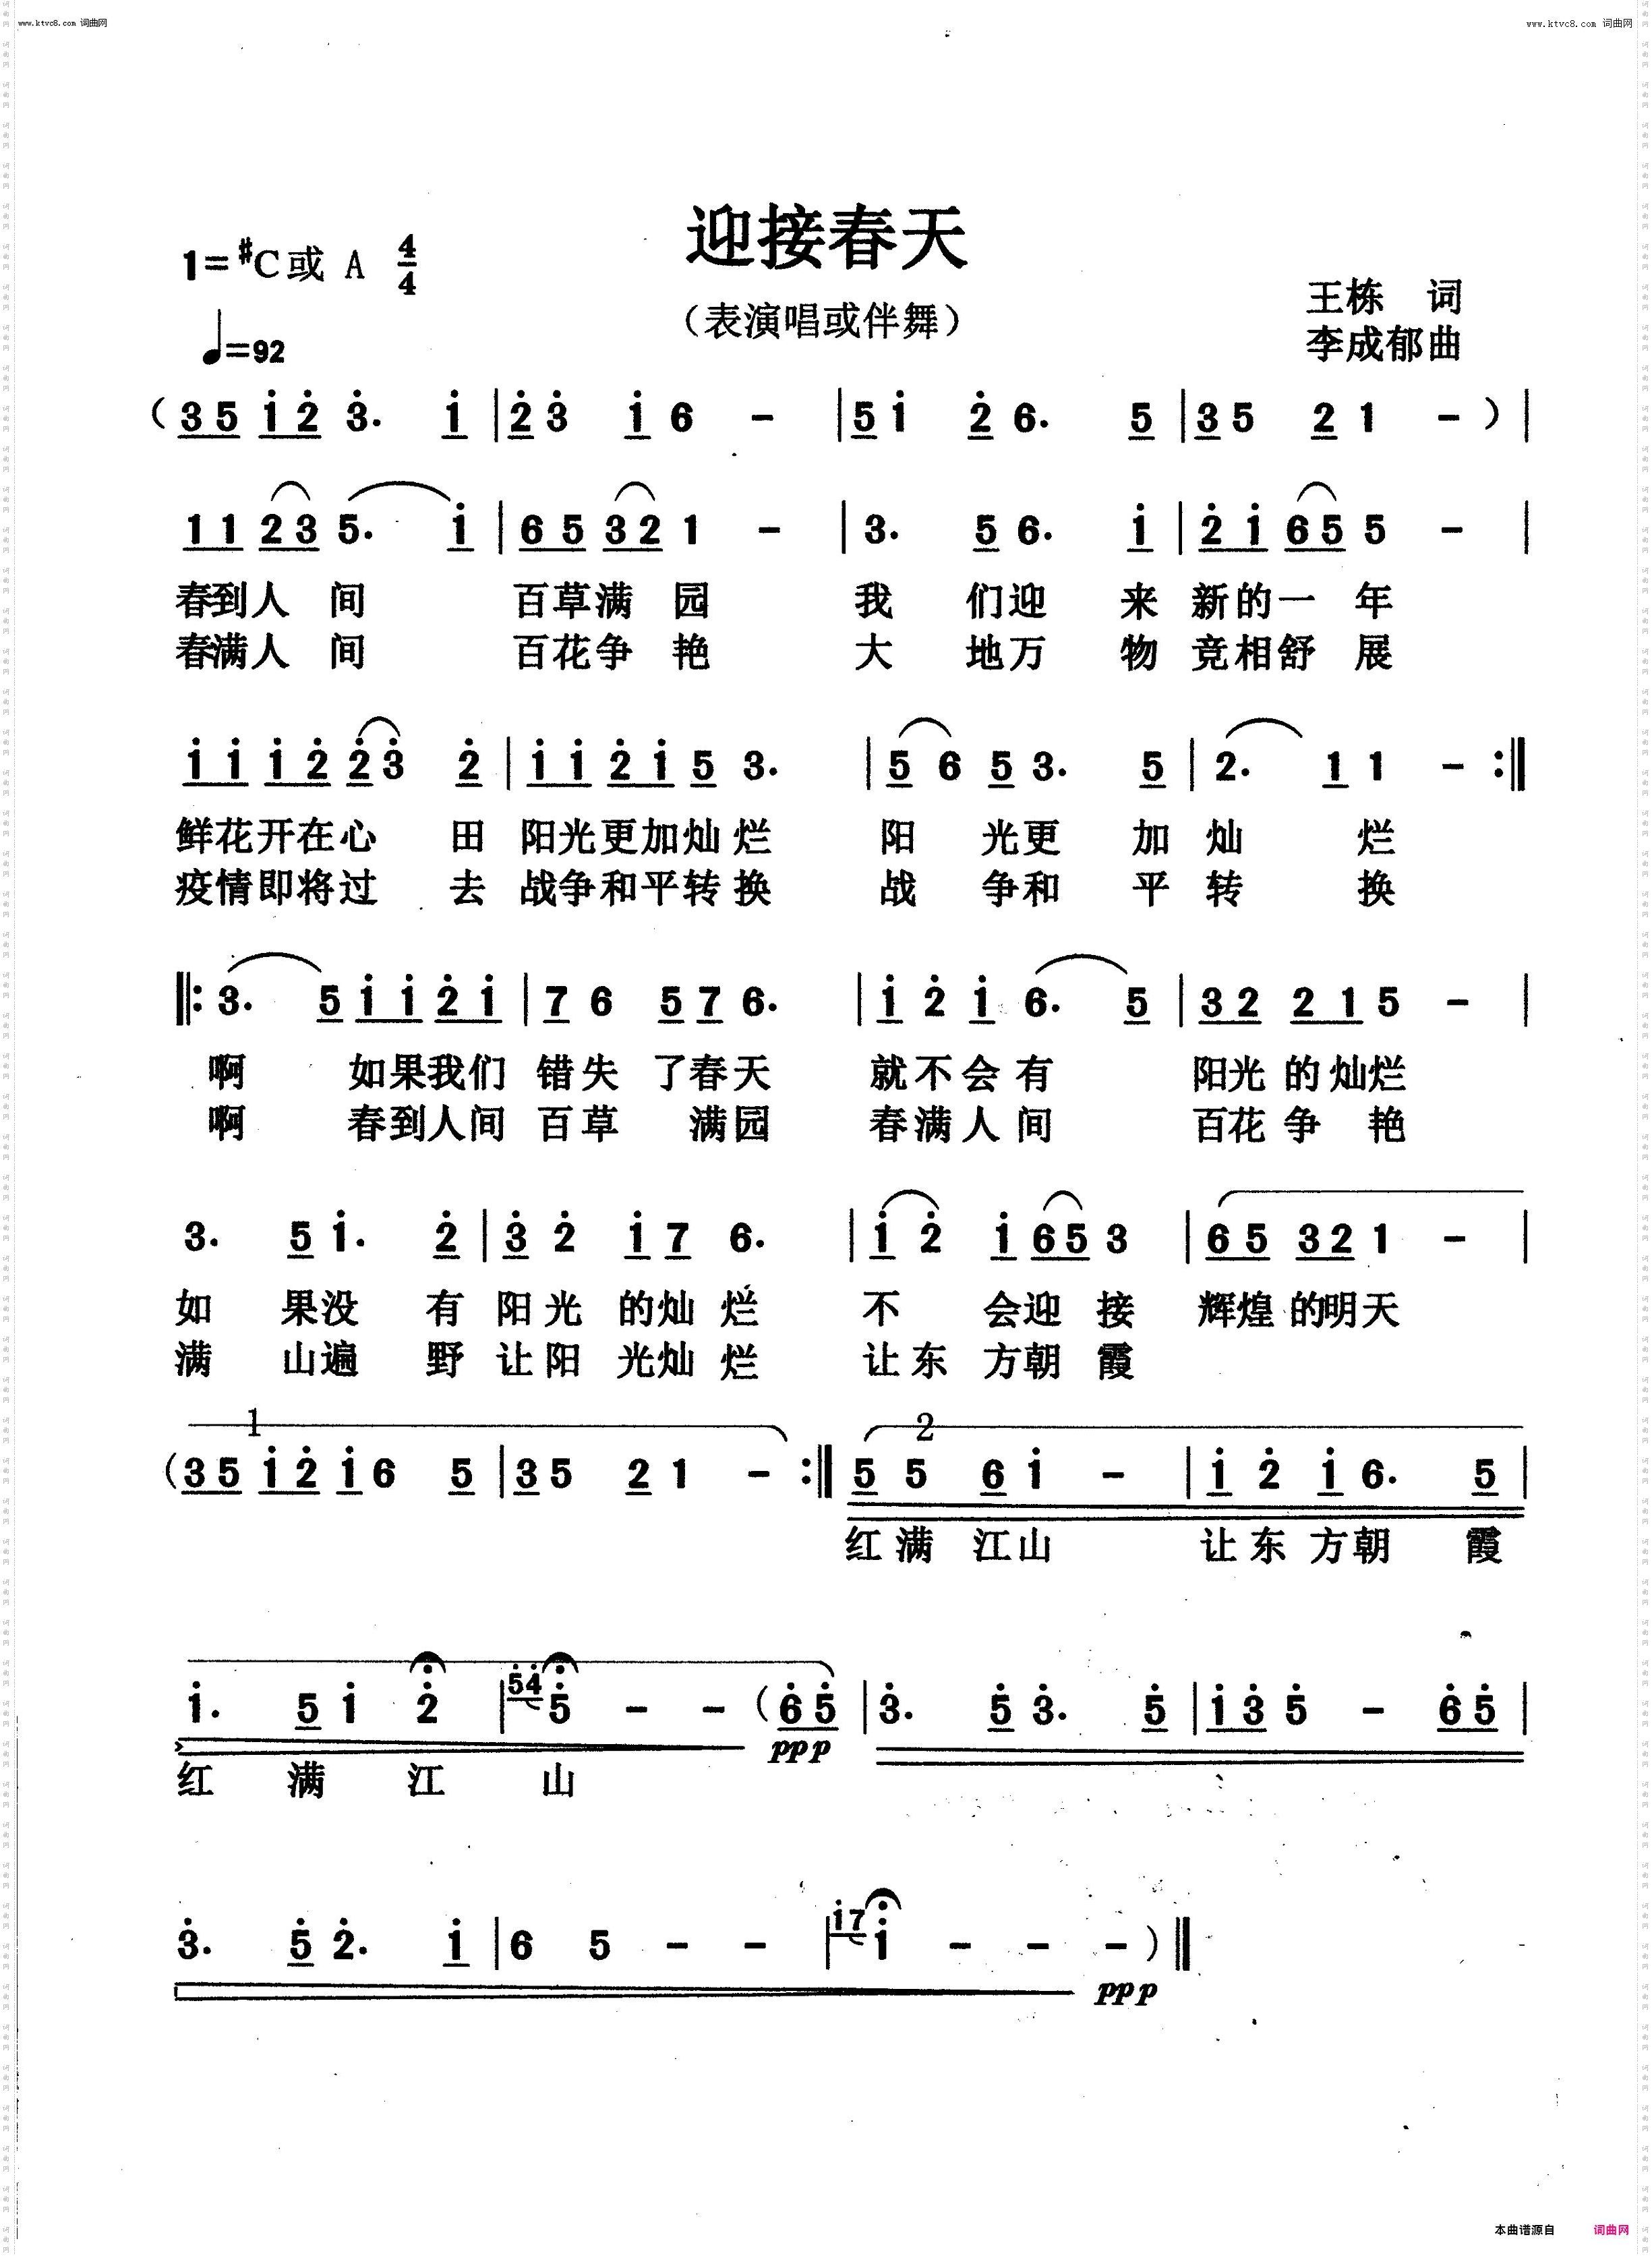 www.ktvc8.com 词曲网
www.ktvc8.com 词曲网
迎接春天
1=#C或 A 4/4
(表演唱或伴舞)
王栋 词
♩=92
李成郁曲
(35 i̇2̇ 3̇. i̇ | 2̇3̇ i̇ 6 - | 5i̇ 2̇ 6. 5 | 35 2 1 - ) |
11 23 5. i̇ | 65 32 1 - | 3. 5 6. i̇ | 2̇i̇ 65 5 - |
春到人 间 百草满 园 我 们迎 来 新的一 年
春满人 间 百花争 艳 大 地万 物 竞相舒 展
i̇i̇ i̇2̇ 2̇3̇ 2̇ | i̇i̇ 2̇i̇ 5 3. | 56 5 3. 5 | 2. 1 1 - :‖
鲜花开在心 田 阳光更加灿烂 阳 光更 加 灿 烂
疫情即将过 去 战争和平转换 战 争和 平 转 换
‖: 3. 5 i̇i̇ 2̇i̇ | 7 6 5 7 6. | i̇ 2̇ i̇ 6. 5 | 32 21 5 - |
啊 如果我们 错失 了春天 就不会有 阳光的灿烂
啊 春到人间 百草 满园 春满人间 百花争 艳
3. 5 i̇. 2̇ | 3̇ 2̇ i̇ 7 6. | i̇ 2̇ i̇ 65 3 | 65 32 1 - |
如 果没 有 阳光 的灿烂 不 会迎 接 辉煌的明天
满 山遍 野 让阳 光灿烂 让东 方朝霞
1 2
(35 i̇2̇ i̇ 6 5 | 35 2 1 - :‖ 5 5 6 i̇ - | i̇ 2̇ i̇ 6. 5 |
红满 江山 让东 方朝 霞
i̇. 5 i̇ 2̇ | 5̇4̇ 5̇ - - (6̇5̇ | 3̇. 5̇ 3̇. 5̇ | i̇3̇ 5̇ - 6̇5̇ |
ppp
红 满 江 山
3̇. 5̇ 2̇. i̇ | 6 5 - - | i̇7 i̇ - - - ) ‖
ppp
本曲谱源自 词曲网